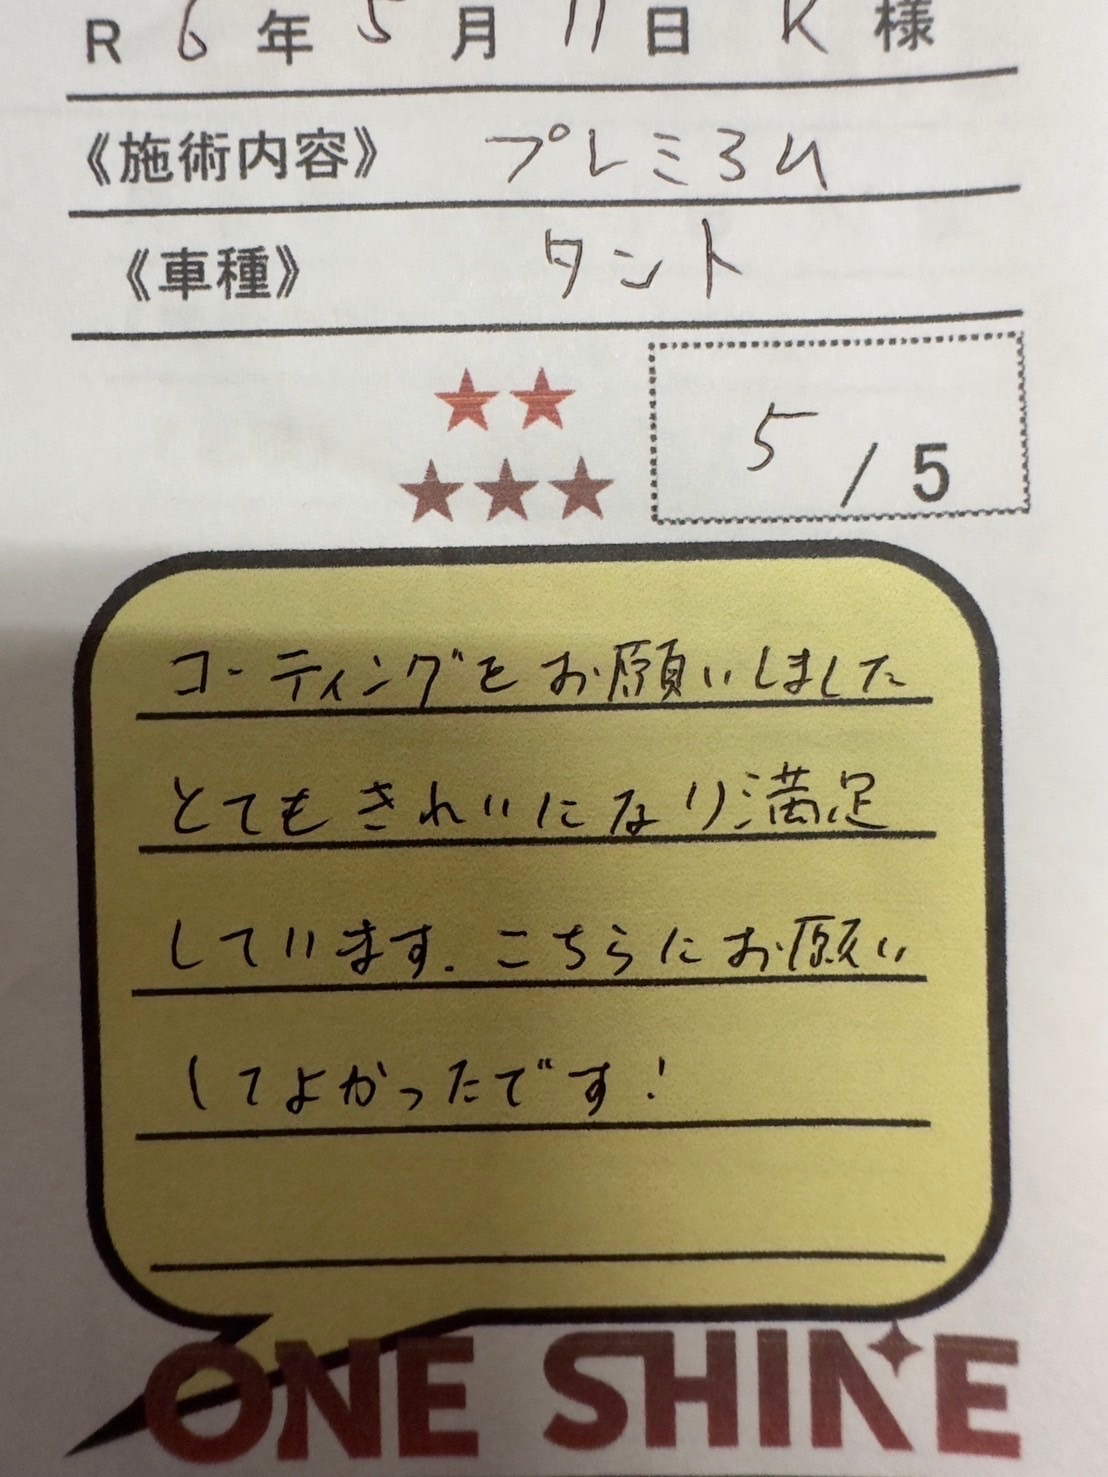 R 6 年 5 月 11 日 K 様
《施術内容》 プレミヨム
《車種》 タント
5 / 5
コーティングをお願いしました
とてもきれいになり満足
しています. こちらにお願い
してよかったです!
ONE SHINE